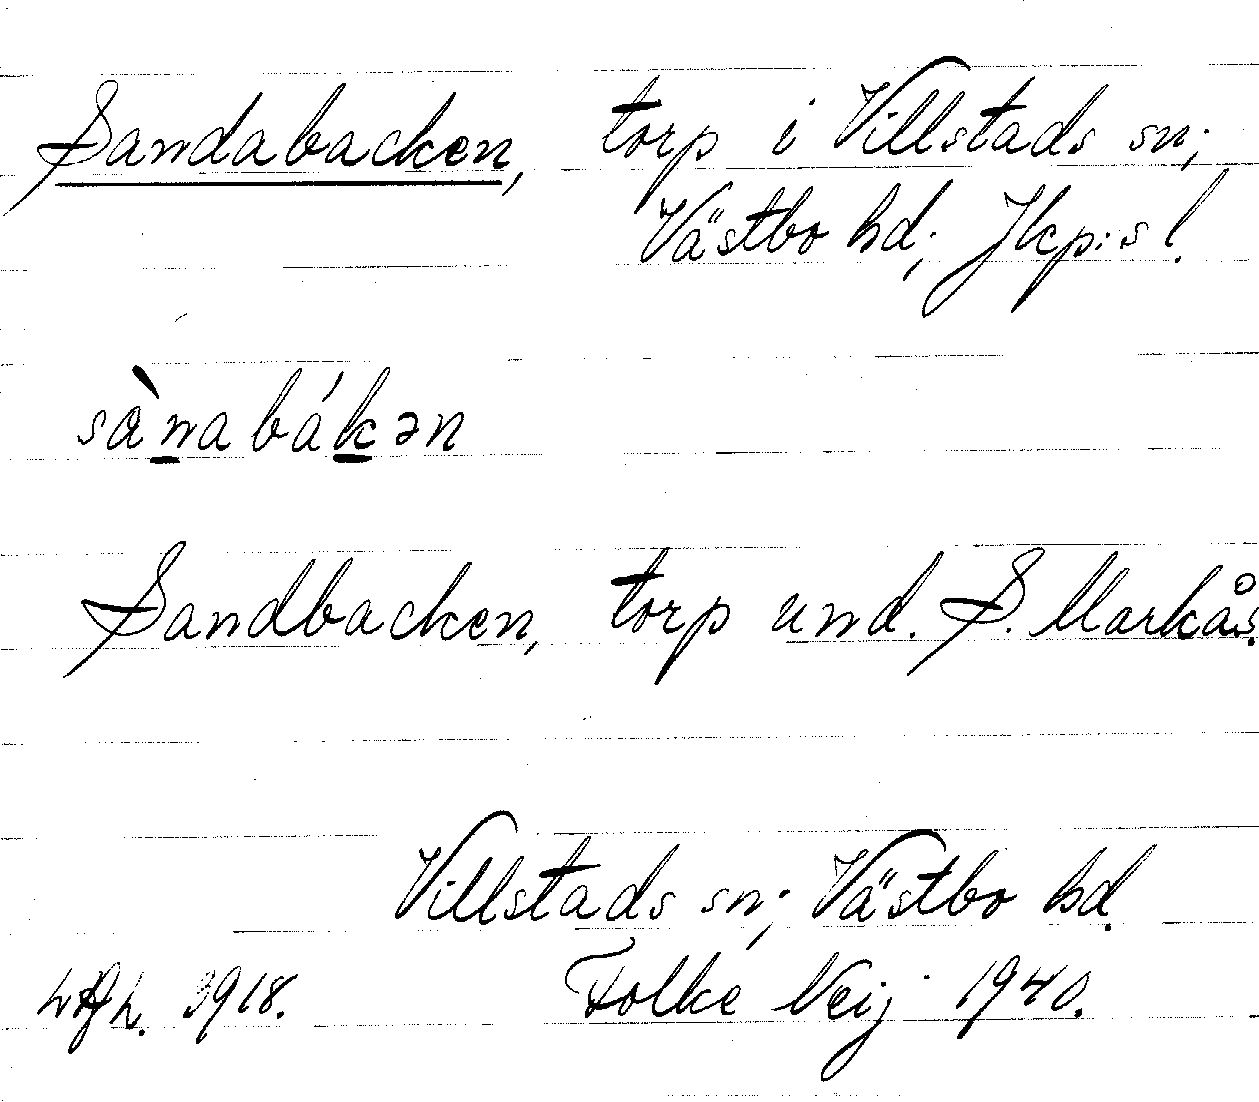 Sandabacken, torp i Villstads sn;
Västbo hd; Jkp:s l.
sànabákən
Sandbacken, torp und. S. Markås.
Villstads sn; Västbo hd.
3918. Folke Neij 1940.